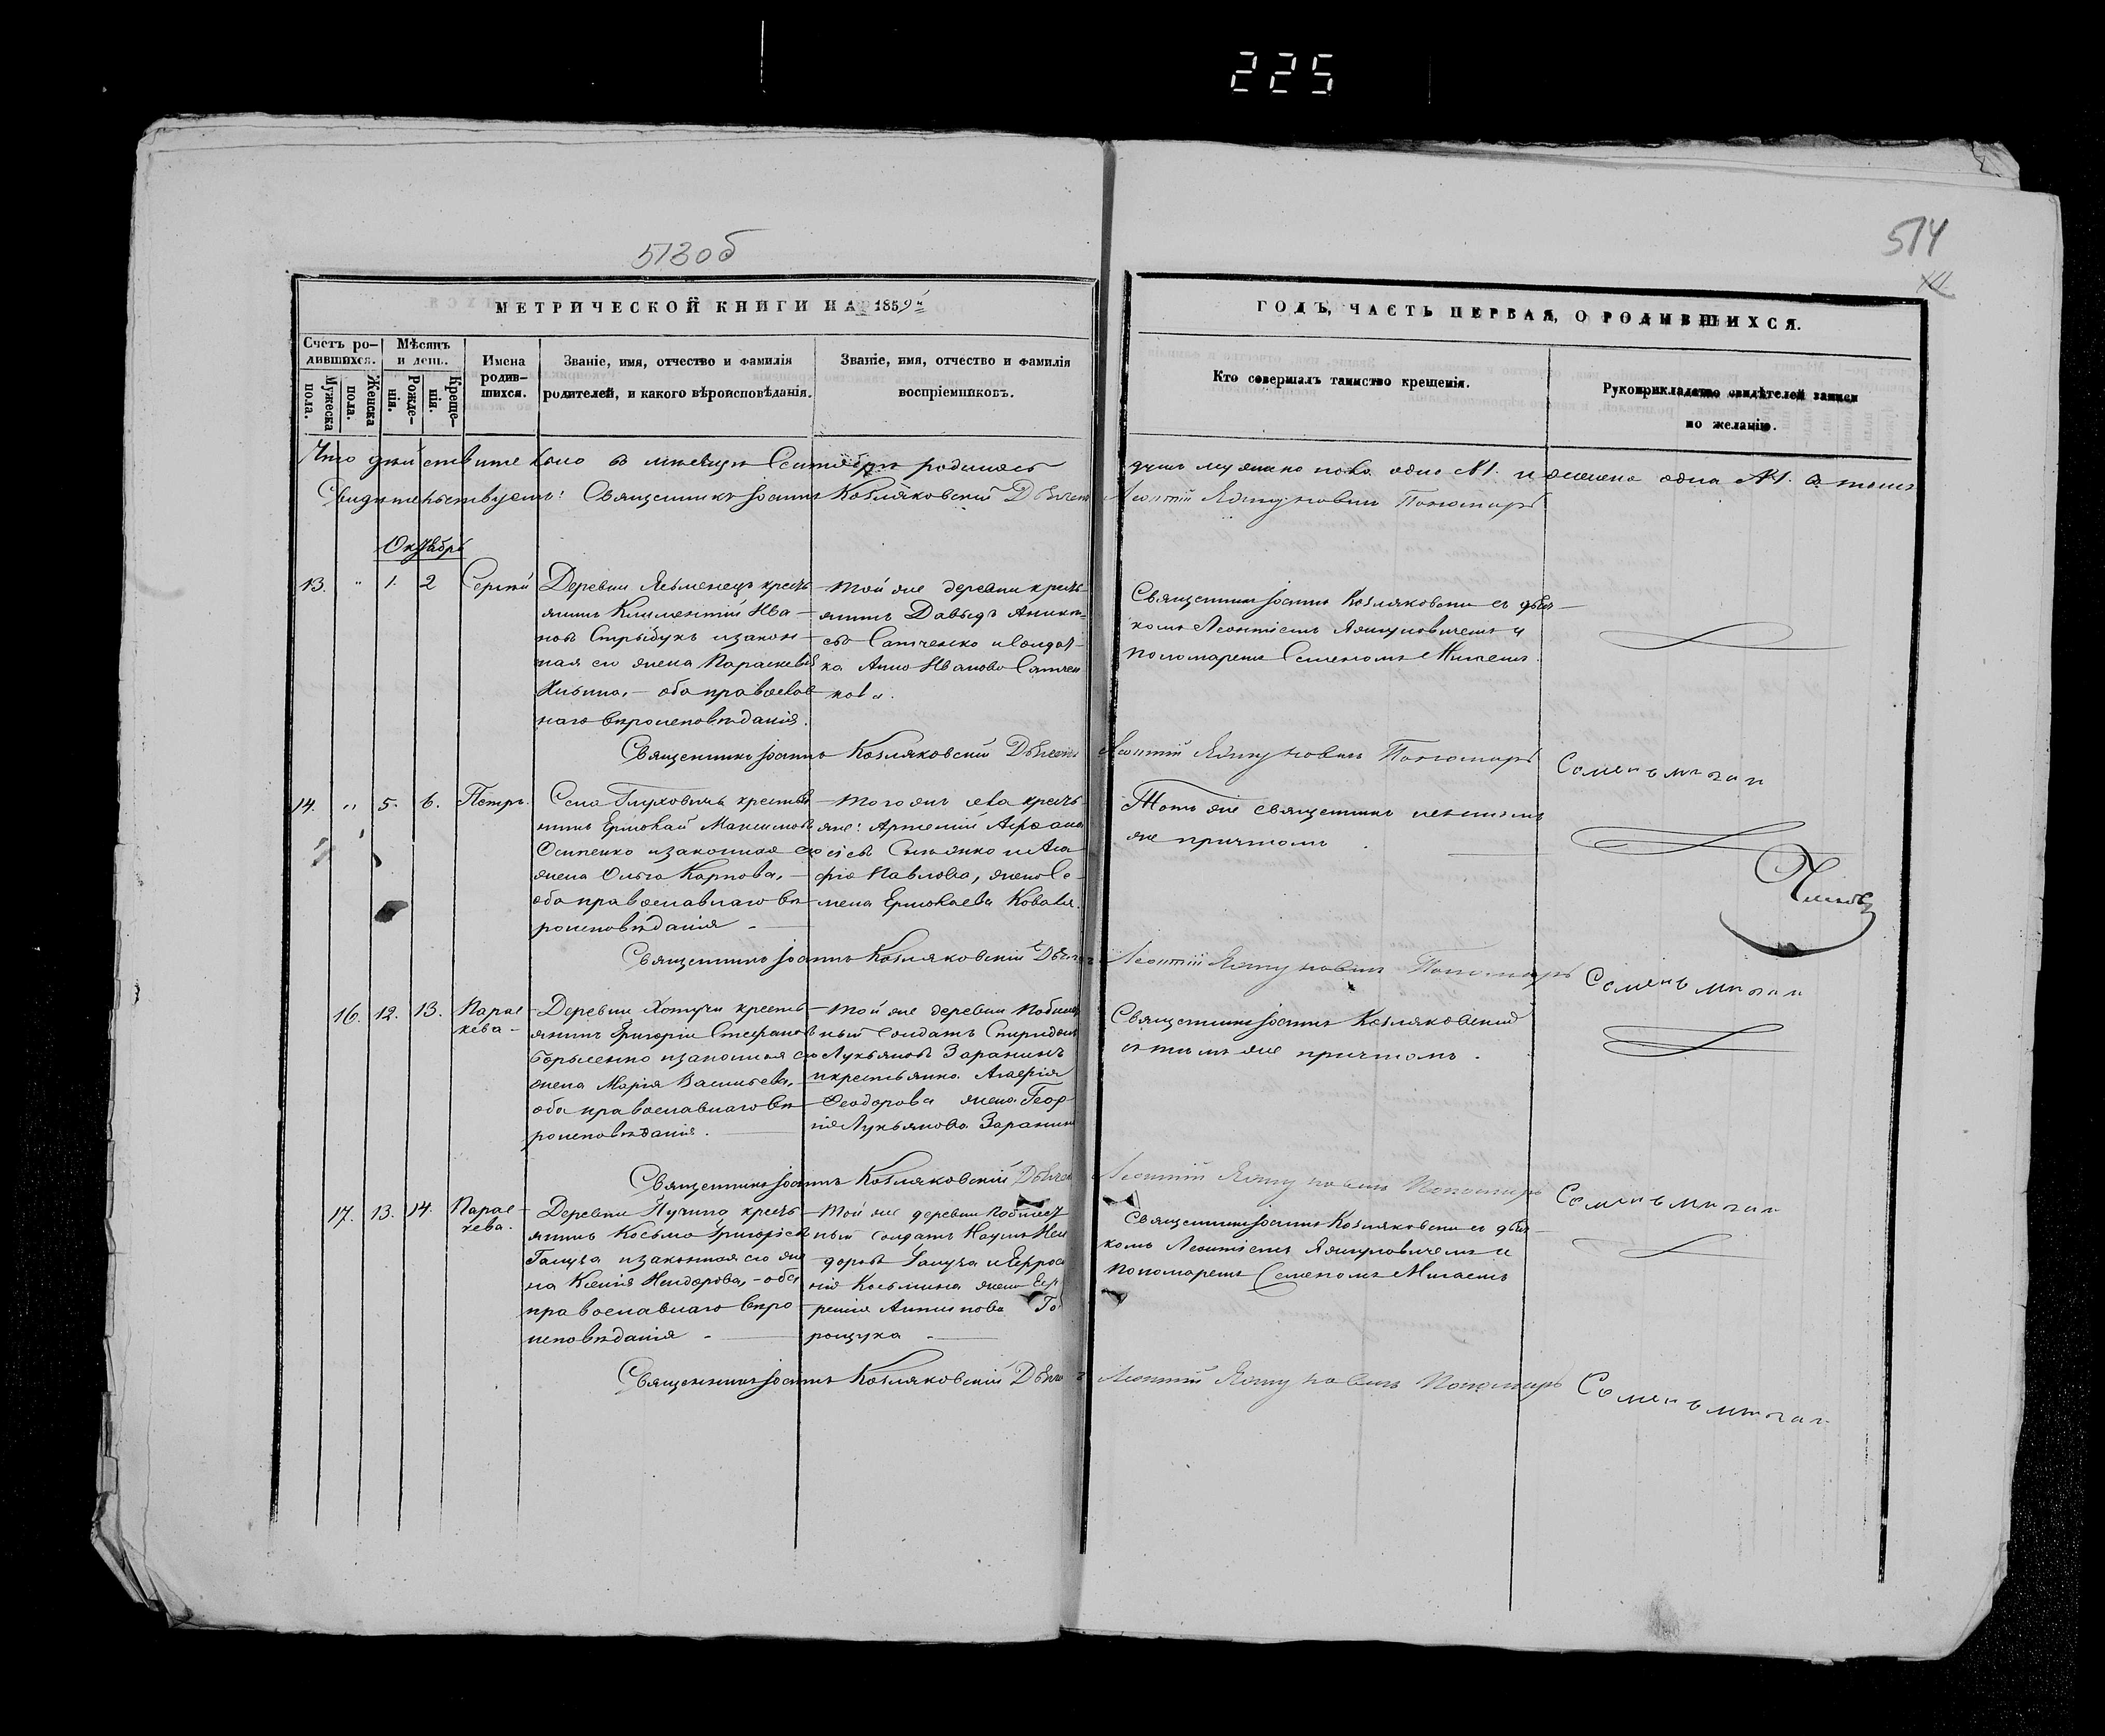 225
513об
514
МЕТРИЧЕСКОЙ КНИГИ НА 1859й
ГОДЪ, ЧАСТЬ ПЕРВАЯ, О РОДИВШИХСЯ.
Счетъ ро-
дившихся.
Мужеска
пола.
Женска
пола.
Мѣсяцъ
и день.
Рожде-
нія.
Креще-
нія.
Имена
родив-
шихся.
Званіе, имя, отчество и фамилія
родителей, и какого вѣроисповѣданія.
Званіе, имя, отчество и фамилія
воспріемниковъ.
Кто совершалъ таинство крещенія.
Рукоприкладство свидѣтелей записи
по желанію.
Что дѣйствительно въ мѣсяцѣ Сентябрѣ родилось
душъ мужеска пола одно №1. и женска одна №1. въ томъ
Свидѣтельствуемъ: Священникъ Іоаннъ Козляковскій Дьячекъ
Леонтій Пономарь
Октябрь
13. " 1. 2 Сергѣй
Деревни крестъ-
янинъ Климентій Ива-
новъ Стрыбукъ и закон-
ная его жена Параскева
Ильина, - оба православ-
наго вѣроисповѣданія.
Той же деревни кресть-
янинъ Давыдъ
Сатченко и Солдат-
ка Анна Иванова Сатчен
кова.
Священникъ Іоаннъ Козляковскій съ дьяч-
комъ Леонтіемъ и
пономаремъ Семеномъ
Священникъ Іоаннъ Козляковскій Дьячекъ
Леонтій Пономарь
Семенъ
14. " 5. 6. Петръ.
Села Глуховичъ крестья-
нинъ Ермолай Максимовъ
Осипенко и законная его
жена Ольга Карпова, -
оба православнаго вѣ-
роисповѣданія -
Того жъ села кресть-
яне: Артемій Афана
сіевъ и Ага-
фія Павлова, жена Се-
мена Ермолаева Коваля.
Тотъ же священникъ съ тѣмъ
же причтомъ
Священникъ Іоаннъ Козляковскій Дьячекъ
Леонтій Пономарь
Семенъ
16. 12. 13. Парас-
кева -
Деревни Хотучи кресть-
янинъ Григорій Стефановъ
Борисенко и законная его
жена Марія Васильева,
оба православнаго вѣ-
роисповѣданія.
Той же деревни
ный солдатъ Спиридонъ
Лукьяновъ
и крестьянка Агафія
Феодорова жена Геор
гія Лукьянова
Священникъ Іоаннъ Козляковскій
съ тѣмъ же причтомъ.
Священникъ Іоаннъ Козляковскій Дьячекъ
Леонтій Пономарь
Семенъ
17. 13. 14. Парас-
кева.
Деревни Пучина кресть-
янинъ Косьма Григорьевъ
Галуза и законная его же
на Ксенія Исидорова, - оба
православнаго вѣро
исповѣданія -
Той же деревни
ный солдатъ Наумъ Иси
доровъ Галуза и Евфроси
нія Косьмина жена
Антипова Го
рощука -
Священникъ Іоаннъ Козляковскій съ дьяч-
комъ Леонтіемъ и
пономаремъ Семеномъ
Священникъ Іоаннъ Козляковскій Дьячекъ
Леонтій Пономарь
Семенъ